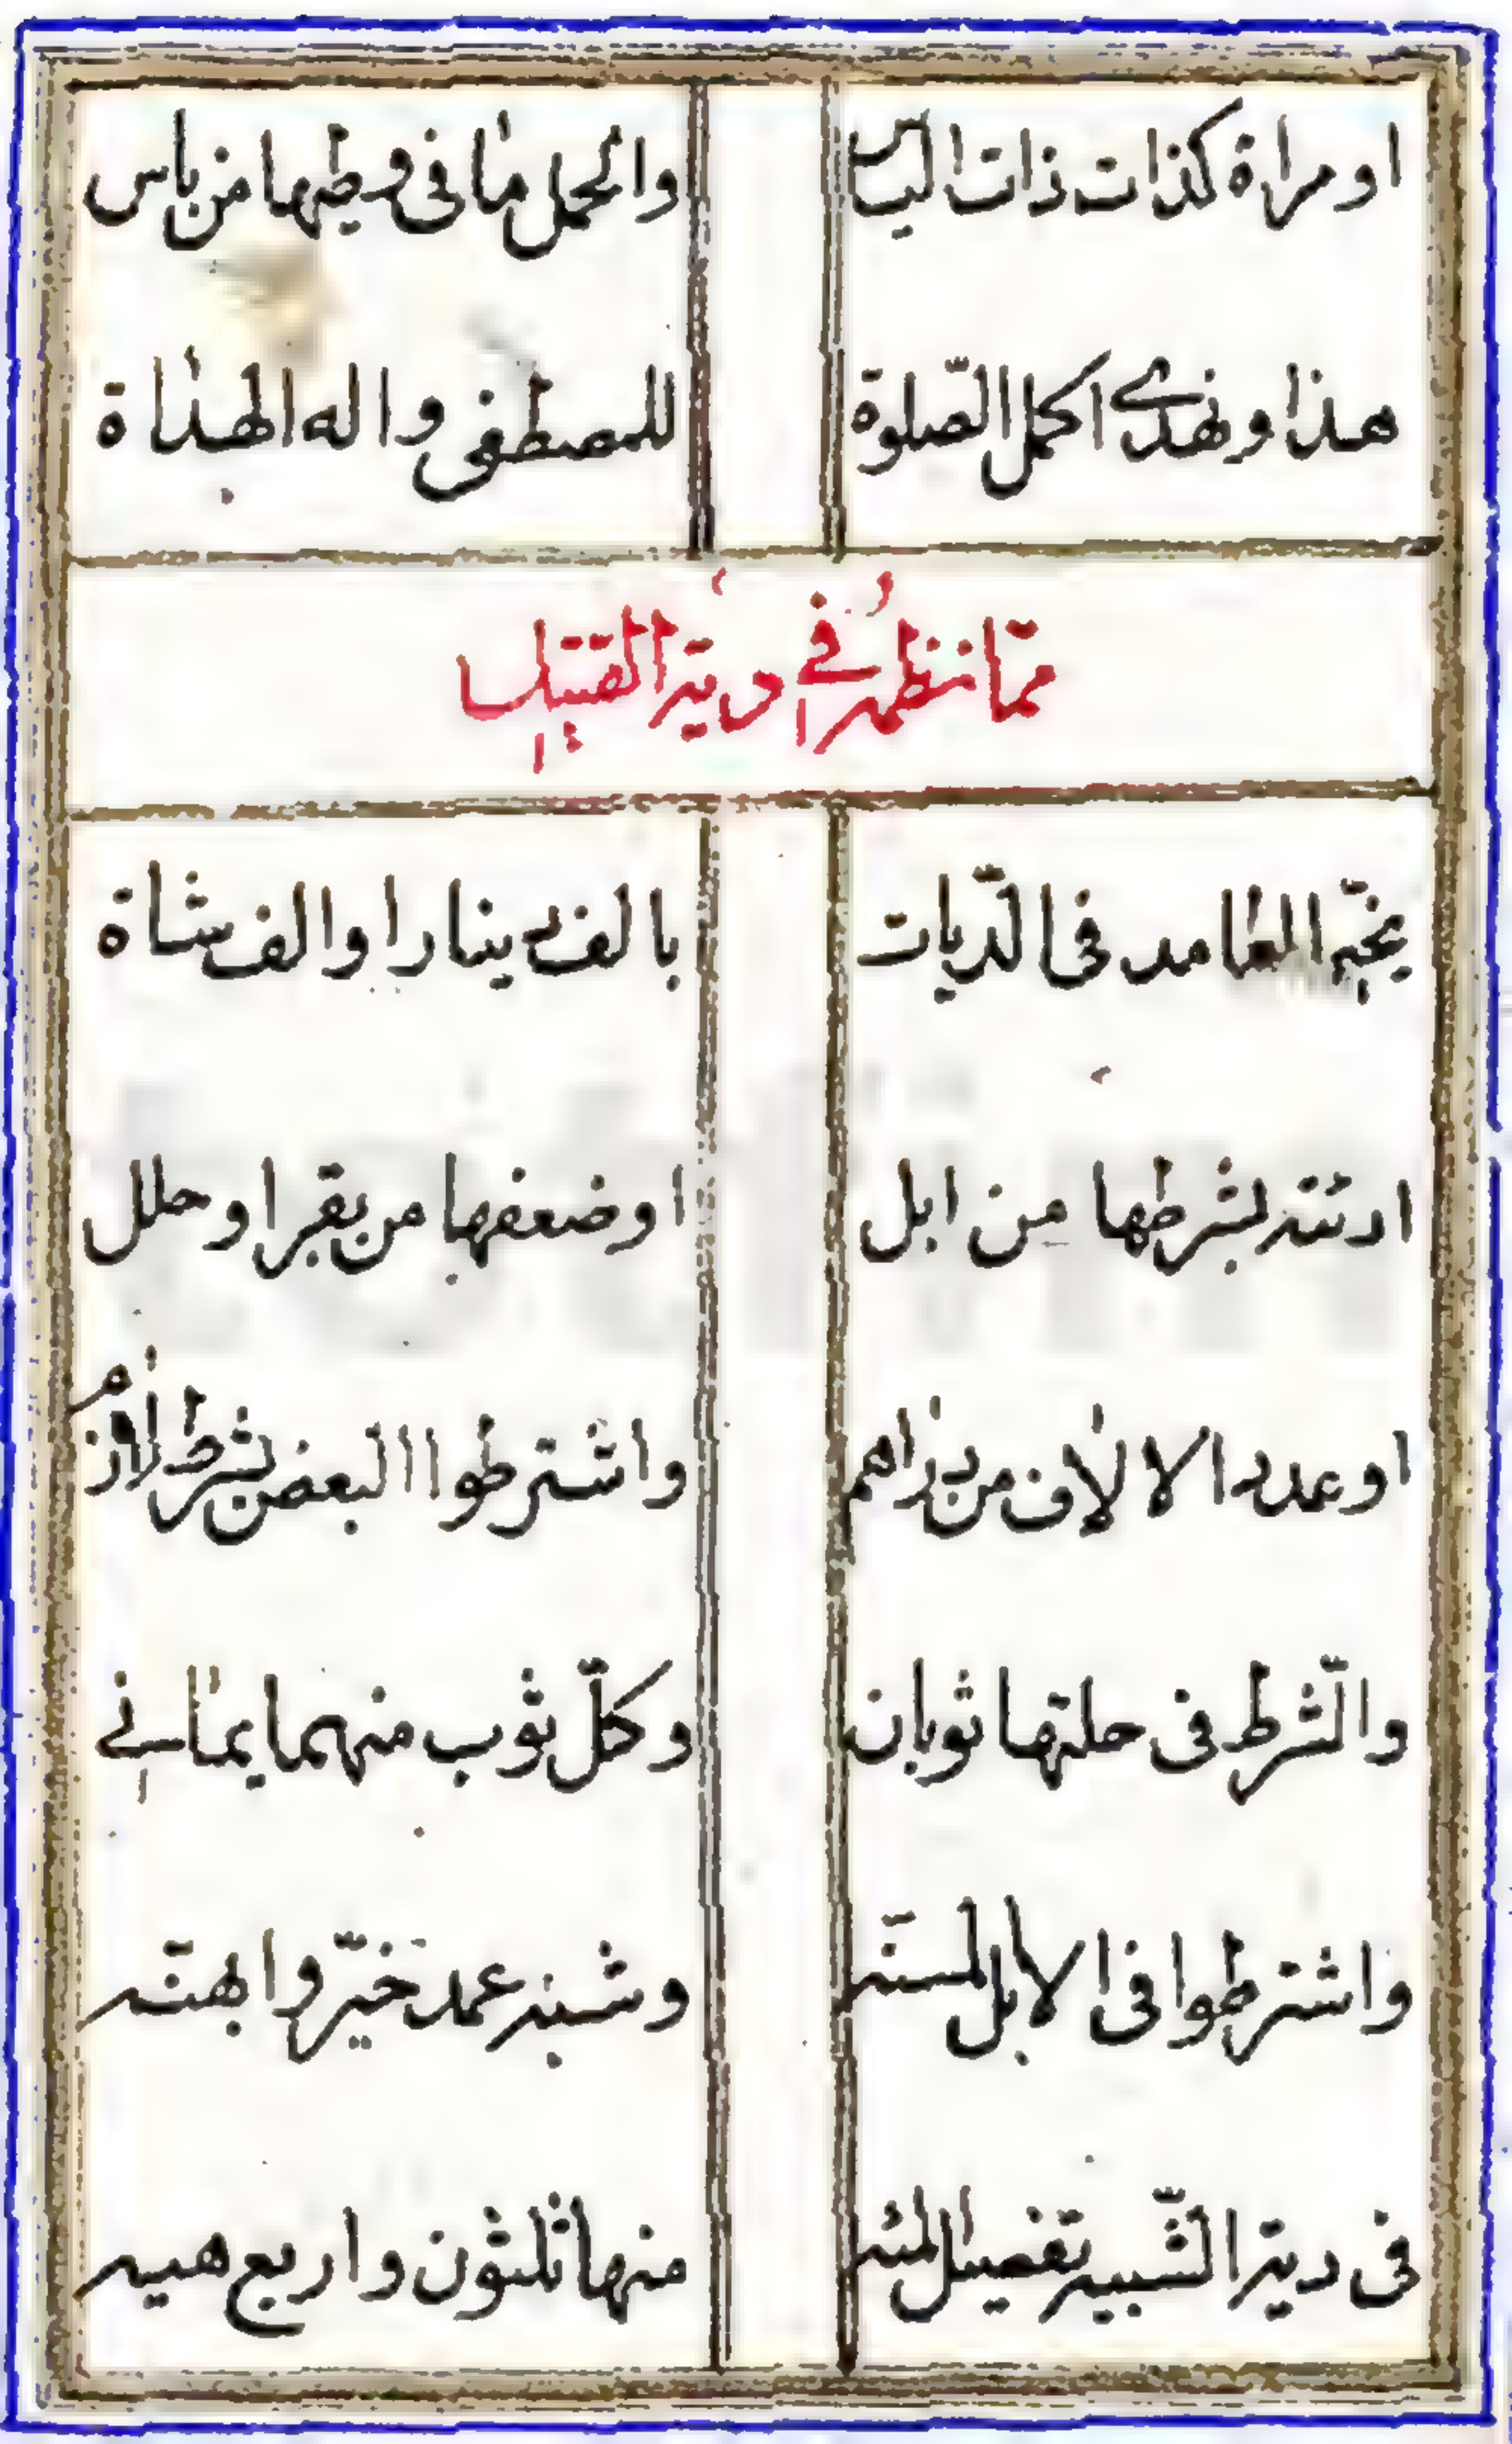 او مراة كذات ذات الياس والحمل ما فى وطيها من باس
هذا ونهدى اكمل الصّلوة للمصطفى واله الهداة
ممّا نظمه في دية القتيل
يخيّر العامد فى الدّيات بالف دينار او الف شاة
او مئة بشرطها من ابل او ضعفها من بقر او حلل
او عدد الالاف من دراهم واشترطوا البعض بشرط لازم
والشّرط فى حلتها ثوبان وكلّ ثوب منهما يمانے
واشترطوا فى الابل المسنّه وشبه عمد خيّروا بهنّه
فى دية الشّبيه تفصيل المئه منها ثلثون واربع هيه